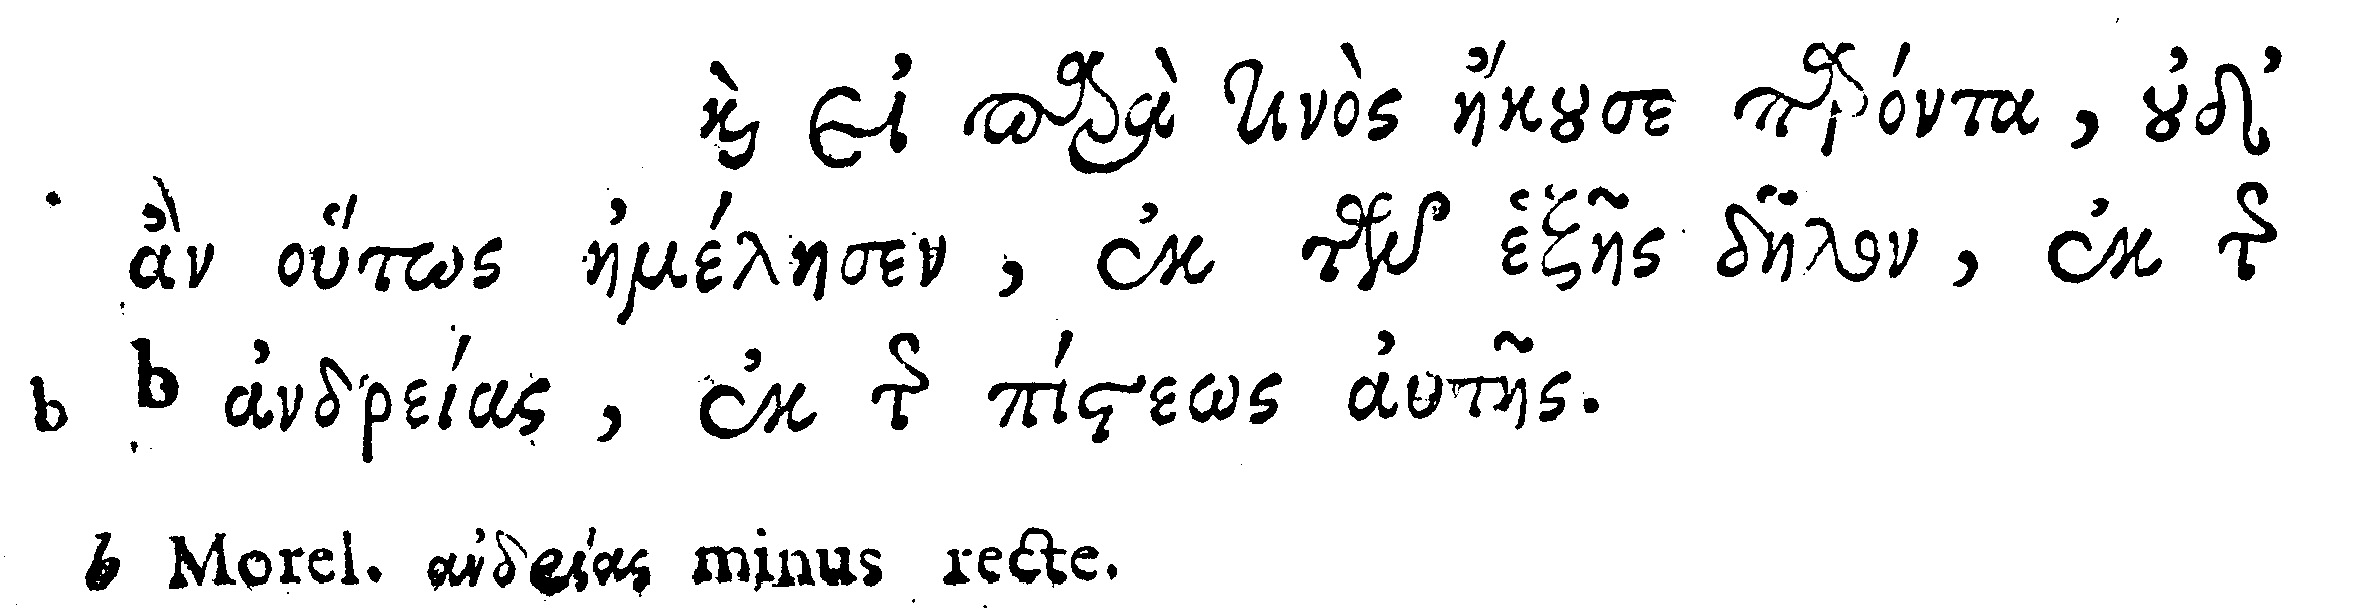 καὶ εἰ παρὰ τινὸς ἤκουσε παρόντα, οὐδ᾽
ἂν οὕτως ἠμέλησεν, ἐκ τῶν ἑξῆς δῆλον, ἐκ τῆς
b b ἀνδρείας, ἐκ τῆς πίστεως αὐτῆς.
b Morel. ἀνδρίας minus recte.